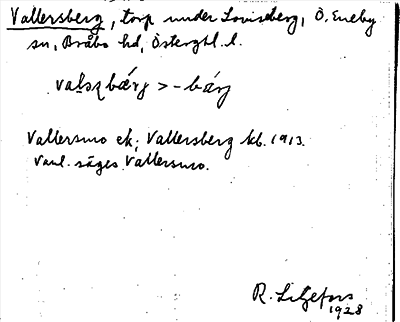 Vallersberg, torp under Louiseberg, Ö. Eneby
sn, Bråbo hd, Östergtl. l.
> -bärg
Vallersmo ek; Vallersberg kb. 1913.
Vanl. säges Vallersmo.
R. Liljefors
1928